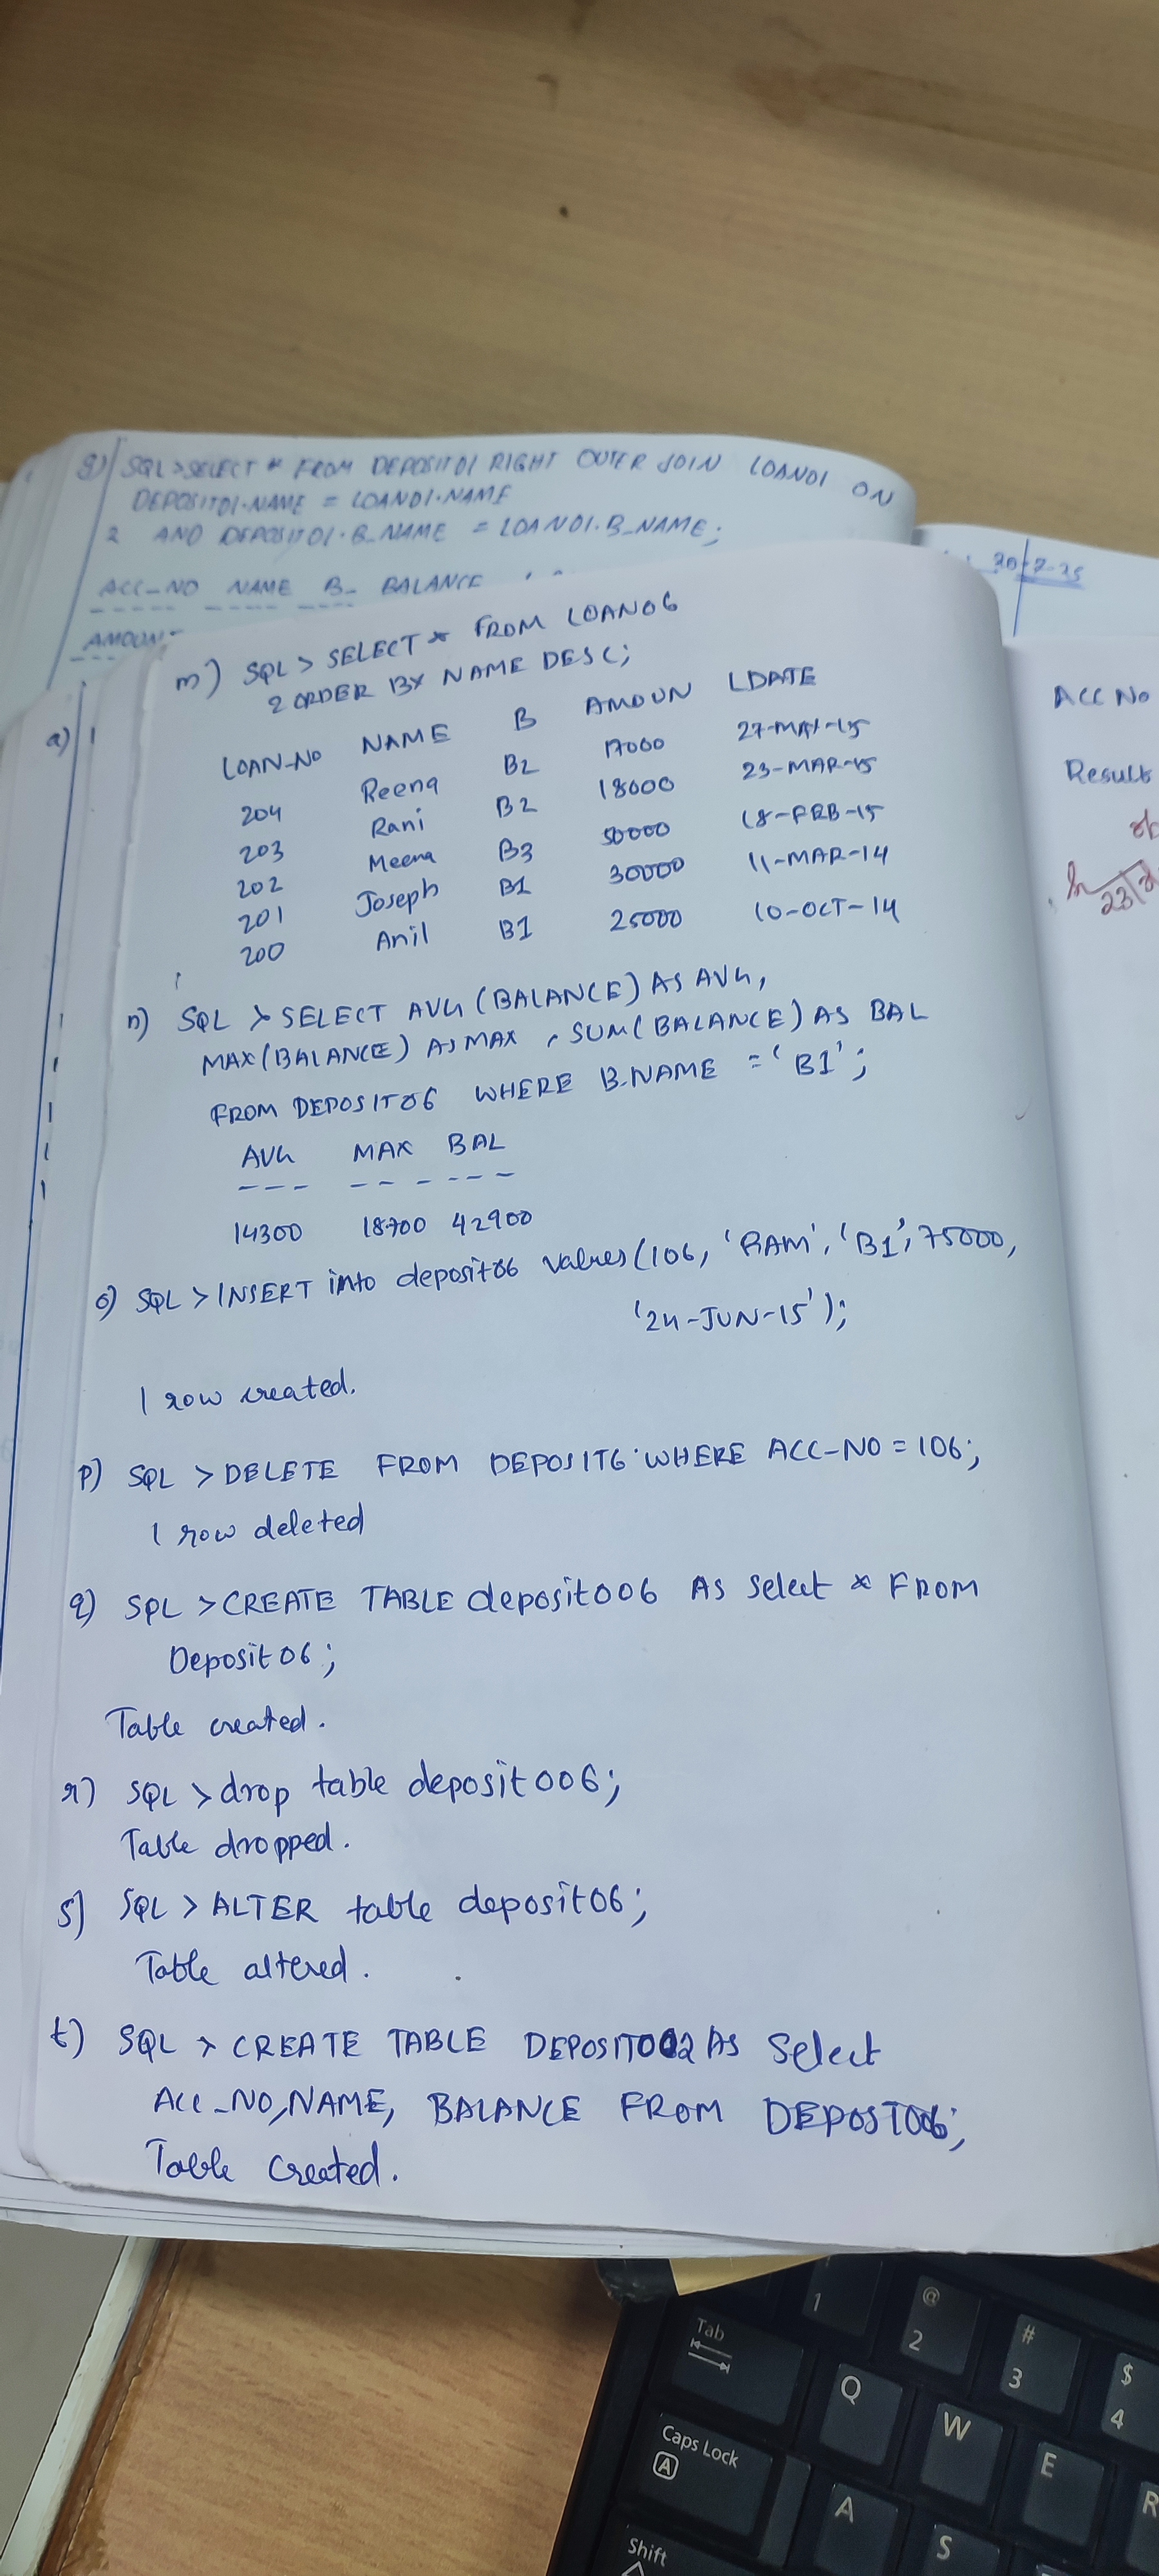 g) SQL>SELECT * FROM DEPOSITD1 RIGHT OUTER JOIN LOAND1 ON
DEPOSITD1.NAME = LOAND1.NAME
2 AND DEPOSITD1.B_NAME = LOAND1.B_NAME;
ACC-NO NAME B- BALANCE
AMOUNT
20-2-25
a)
m) SQL > SELECT * FROM LOAN06
2 ORDER BY NAME DESC;
LOAN-NO NAME B AMOUN LDATE
204 Reena B2 17000 27-MAY-15
203 Rani B2 18000 23-MAR-15
202 Meena B3 50000 18-FEB-15
201 Joseph B1 30000 11-MAR-14
200 Anil B1 25000 10-OCT-14
n) SQL > SELECT AVG (BALANCE) AS AVG,
MAX(BALANCE) AS MAX , SUM(BALANCE) AS BAL
FROM DEPOSIT06 WHERE B_NAME = 'B1';
AVG MAX BAL
--- --- ---
14300 18700 42900
o) SQL > INSERT into deposit06 values(106, 'RAM', 'B1', 75000,
'24-JUN-15');
1 row created.
p) SQL > DELETE FROM DEPOSIT6 WHERE ACC-NO = 106;
1 row deleted
q) SPL > CREATE TABLE deposit006 AS select * FROM
Deposit06;
Table created.
r) SQL > drop table deposit006;
Table dropped.
s) SQL > ALTER table deposit06;
Table altered.
t) SQL > CREATE TABLE DEPOSIT002 AS Select
ACC_NO,NAME, BALANCE FROM DEPOST006;
Table Created.
ACC No
Result
23
Tab
1
@
2
#
3
$
4
Q
W
E
R
Caps Lock
A
A
S
Shift